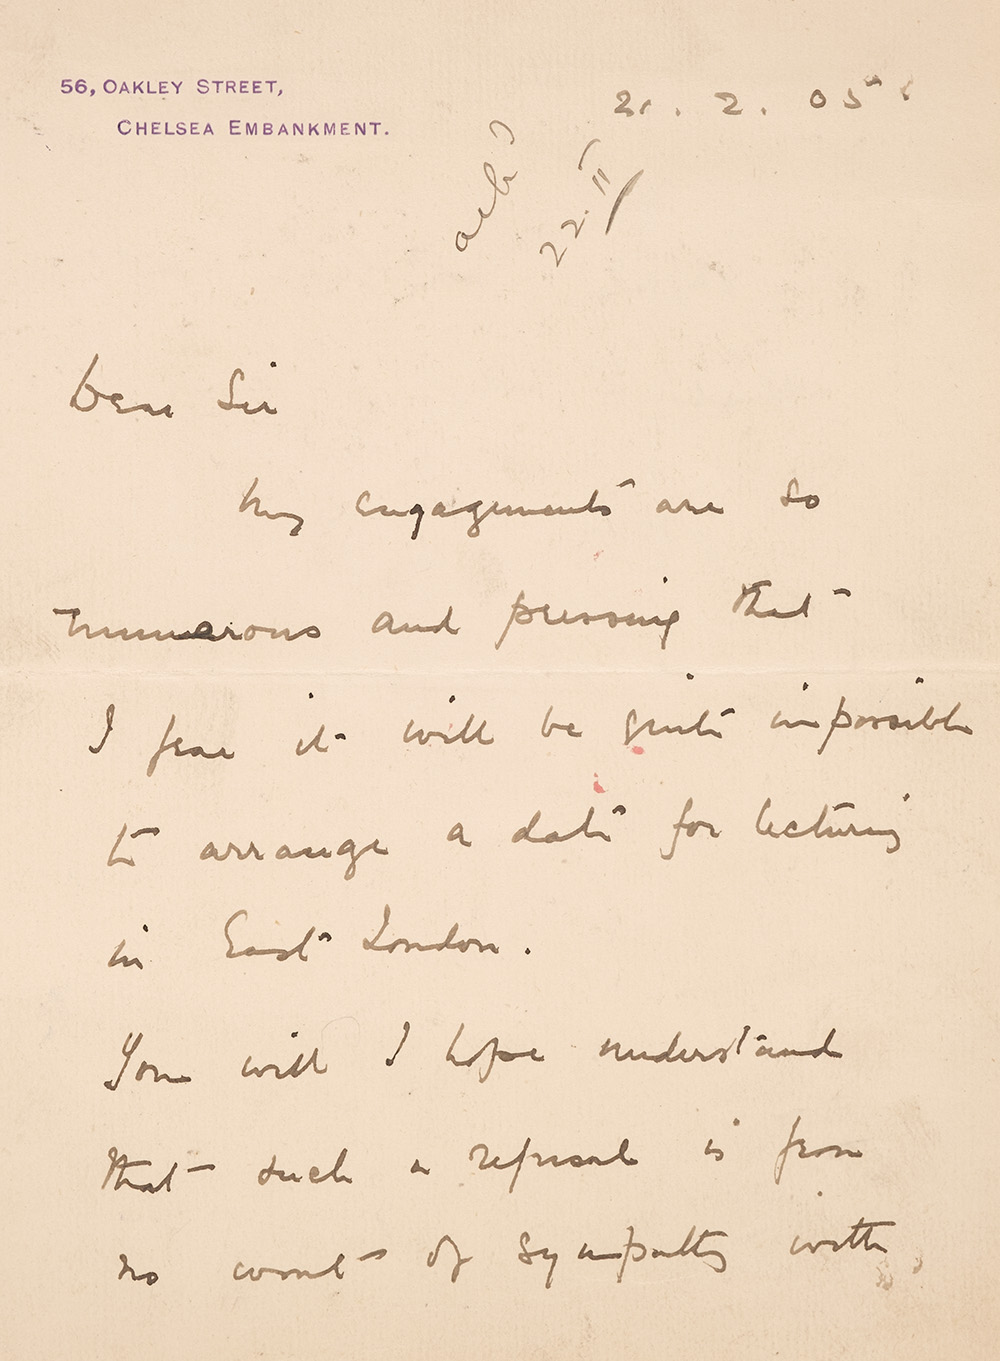 56, OAKLEY STREET,
CHELSEA EMBANKMENT.
21. 2. 05
22.II
Dear Sir
My engagements are so
numerous and pressing that
I fear it will be quite impossible
to arrange a date for lecturing
in East London.
You will I hope understand
that such a refusal is from
no want of sympathy with